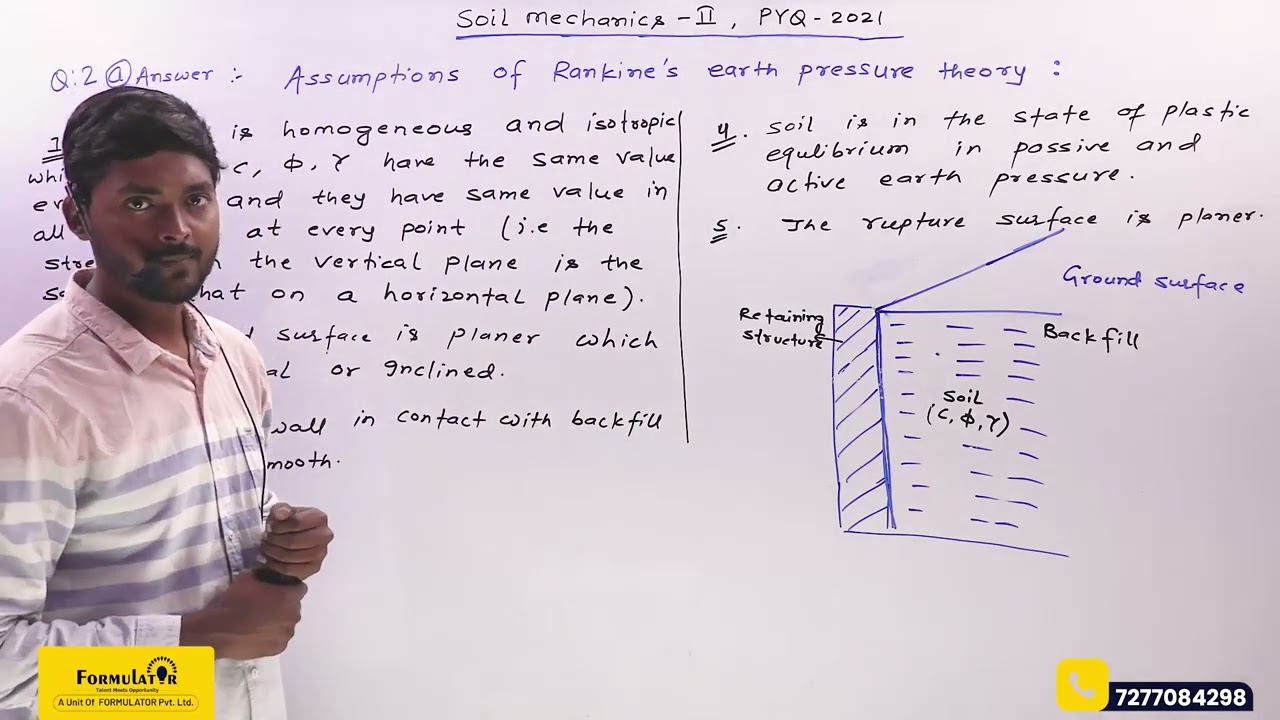 Soil mechanics - II , PYQ - 2021
Q:2 (a) Answer :- Assumptions of Rankine's earth pressure theory :
is homogeneous and isotropic
c, φ, γ have the same value
and they have same value in
all at every point (i.e the
the vertical plane is the
that on a horizontal plane).
surface is planer which
or Inclined.
wall in contact with backfill
4. Soil is in the state of plastic
equlibrium in possive and
active earth pressure.
5. The rupture surface is planer.
Ground surface
Retaining
structure
Backfill
Soil
(c, φ, γ)
FORMULATOR
Talent Meets Opportunity
A Unit Of FORMULATOR Pvt. Ltd.
7277084298